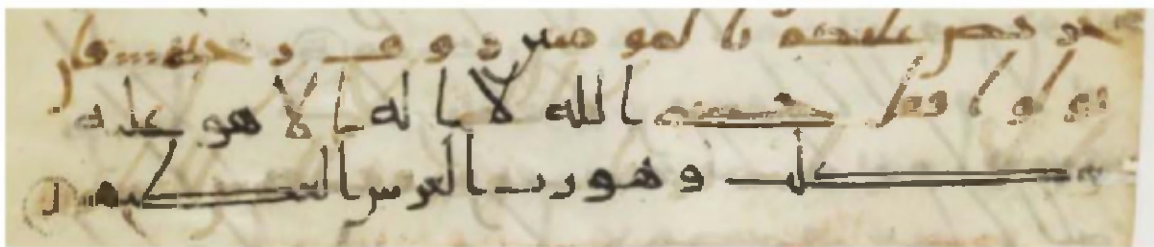 حريص عليكم بالمومنين روف رحيم فان
تولوا فقل حسبي الله لا اله الا هو عليه
توكلت وهو رب العرش العظيم